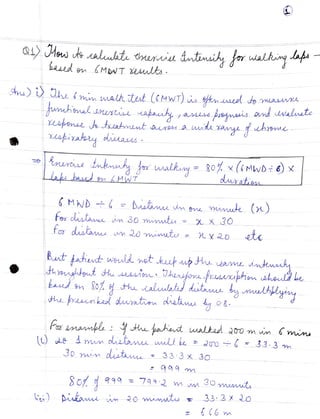 ①
Q1) How do calculate exercise Intensity for walking laps
based on 6MWT results.
Ans) i) The 6 min walk test (6MWT) is often used to measure
functional exercise capacity, assess prognosis and evaluate
response to treatment across a wide range of chronic
respiratory diseases.
Exercise Intensity for walking = 80% x (6MWD ÷ 6) x
laps based on 6MWT duration
6 MWD ÷ 6 = Distance in one minute (x)
For distance in 30 minutes = x x 30
For distance in 20 minutes = x x 20 etc
But patient would not keep up the same intensity
throughout the session. Therefore prescription should be
based on 80% of the calculated distance by multiplying
the prescribed duration distance by 0.8.
For example: If the patient walked 200 m in 6 mins
(i) 1 min distance will be = 200 ÷ 6 = 33.3 m
30 min distance = 33.3 x 30
= 999 m
80% of 999 = 799.2 m in 30 minutes
(ii) Distance in 20 minutes = 33.3 x 20
= 666 m